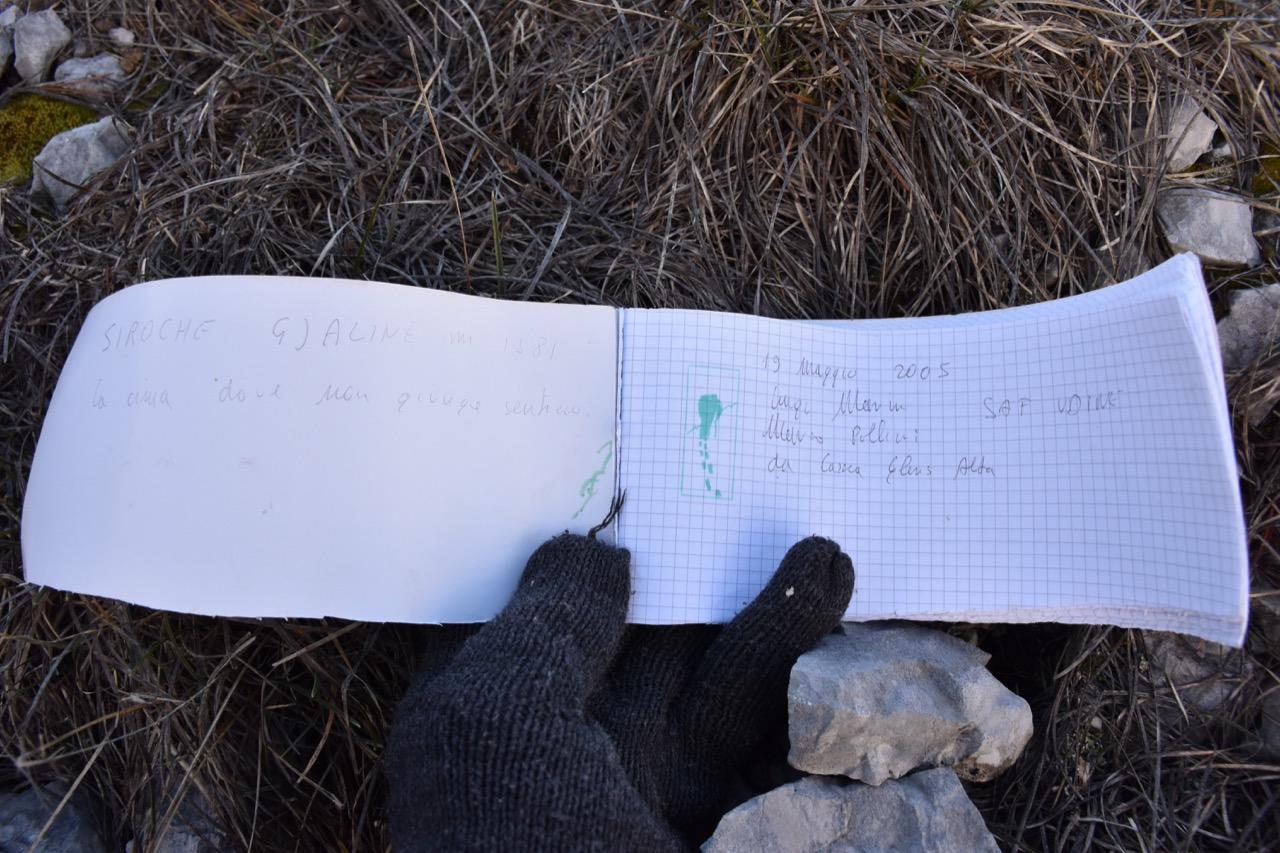 SIROCHE GJALINE m 1381
la cima dove non giunge sentiero.
19 Maggio 2005
Luigi SAF UDINE
Marco Pollini
da Casera Glerìs Alta